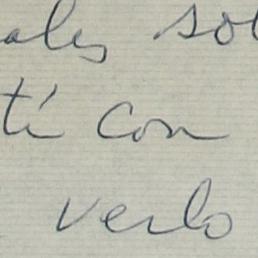 ales sol
tí con
verlo